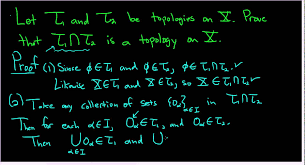 Let τ₁ and τ₂ be topologies on X. Prove
that τ₁∩τ₂ is a topology on X.
Proof (1) Since ϕ∈τ₁ and ϕ∈τ₂, ϕ∈τ₁∩τ₂.✓
Likewise X∈τ₁ and X∈τ₂, so X∈τ₁∩τ₂✓
(2) Take any collection of sets {Oα}α∈I in τ₁∩τ₂
Then for each α∈I, Oα∈τ₁, and Oα∈τ₂.
Then ⋃α∈I Oα∈τ₁ and ⋃